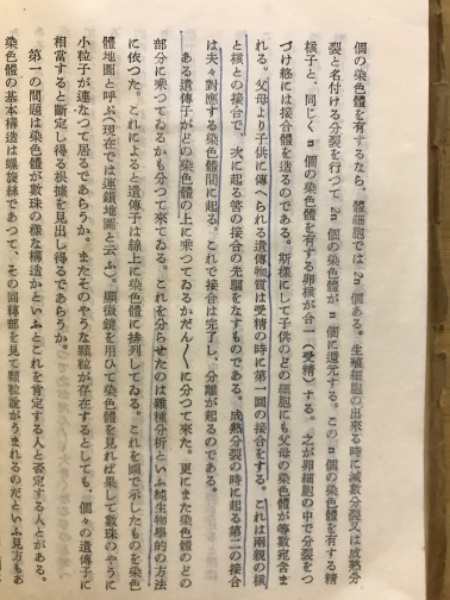 個の染色體を有するなら、體細胞では 2n 個ある。生殖細胞の出來る時に減數分裂又は成熟分
裂と名付ける分裂を行つて 2n 個の染色體が n 個に還元する。この n 個の染色體を有する精
核子と、同じく n 個の染色體を有する卵核が合一（受精）する。之が卵細胞の中で分裂をつ
づけ終には接合體を造るのである。斯樣にして子供のどの細胞にも父母の染色體が等數宛含ま
れる。父母より子供に傳へられる遺傳物質は受精の時に第一回の接合をする。これは兩親の核
と核との接合で、次に起る筈の接合の先驅をなすものである。成熟分裂の時に起る第二の接合
は夫々對應する染色體間に起る。これで接合は完了し、分離が起るのである。
ある遺傳子がどの染色體の上に乘つてゐるかだん〳〵に分つて來た。更にまた染色體のどの
部分に乘つてゐるかも分つて來てゐる。これを分らせたのは雜種分析といふ純生物學的の方法
に依つた。これによると遺傳子は線上に染色體に排列してゐる。これを圖で示したものを染色
體地圖と呼ぶ（現在では連鎖地圖と云ふ）。顯微鏡を用ひて染色體を見れば果して數珠のやうに
小粒子が連なつて居るであらうか。またそのやうな顆粒が存在するとしても、個々の遺傳子に
相當すると斷定し得る根據を見出し得るであらうか。
第一の問題は染色體が數珠の樣な構造かといふとこれを肯定する人と否定する人とがある。
染色體の基本構造は螺旋絲であつて、その回轉部を見て顆粒說がうまれるのだといふ見方もあ